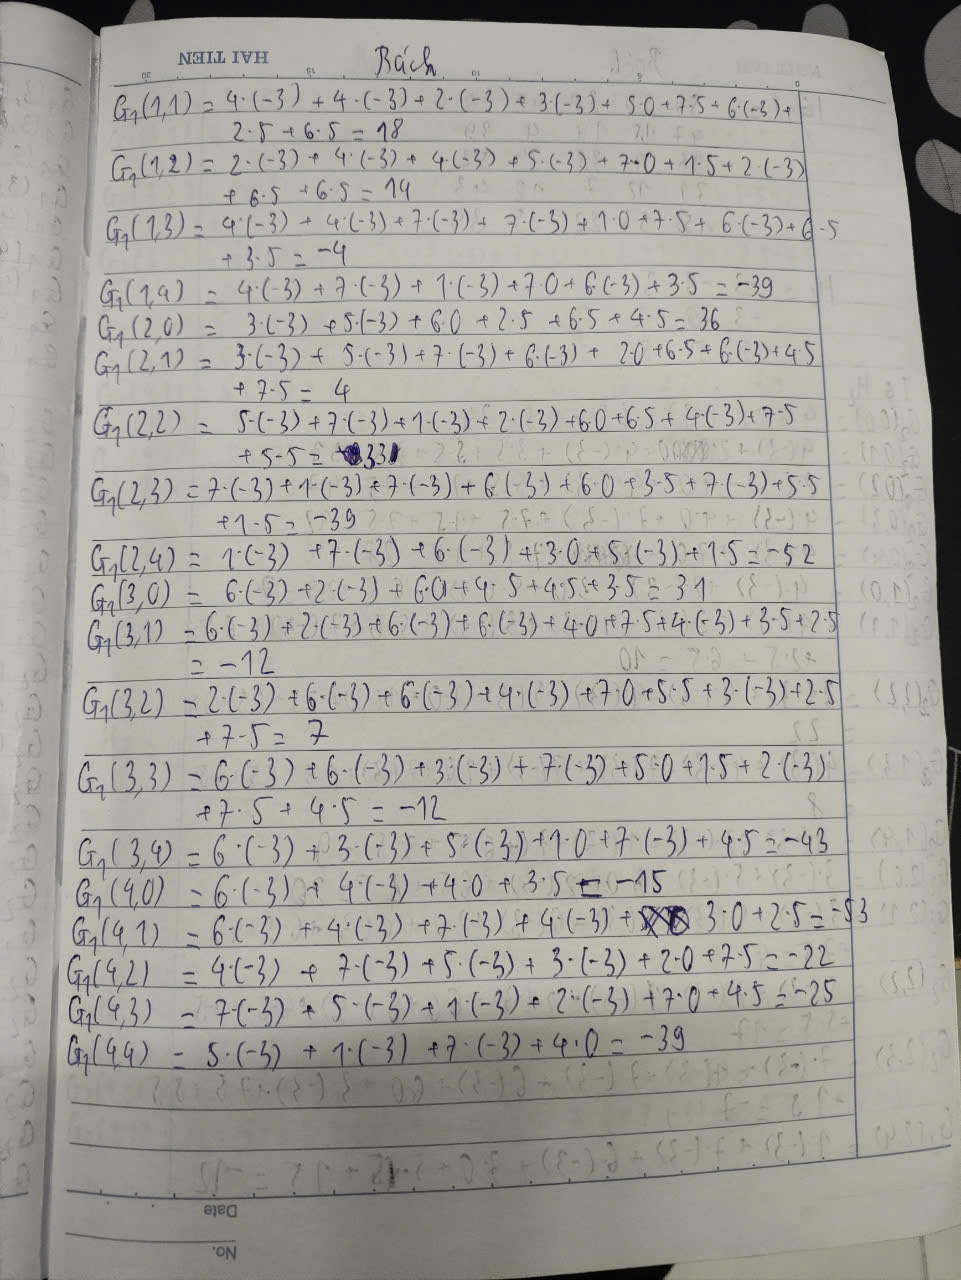 HAI TIEN
Bách
G₁(1,1) = 4·(-3) + 4·(-3) + 2·(-3) + 3·(-3) + 5·0 + 7·5 + 6·(-3) +
2·5 + 6·5 = 18
G₁(1,2) = 2·(-3) + 4·(-3) + 4·(-3) + 5·(-3) + 7·0 + 1·5 + 2·(-3)
+ 6·5 + 6·5 = 14
G₁(1,3) = 4·(-3) + 4·(-3) + 7·(-3) + 7·(-3) + 1·0 + 7·5 + 6·(-3) + 6·5
+ 3·5 = -4
G₁(1,4) = 4·(-3) + 7·(-3) + 1·(-3) + 7·0 + 6·(-3) + 3·5 = -39
G₁(2,0) = 3·(-3) + 5·(-3) + 6·0 + 2·5 + 6·5 + 4·5 = 36
G₁(2,1) = 3·(-3) + 5·(-3) + 7·(-3) + 6·(-3) + 2·0 + 6·5 + 6·(-3) + 4·5
+ 7·5 = 4
G₁(2,2) = 5·(-3) + 7·(-3) + 1·(-3) + 2·(-3) + 6·0 + 6·5 + 4·(-3) + 7·5
+ 5·5 = 33
G₁(2,3) = 7·(-3) + 1·(-3) + 7·(-3) + 6·(-3) + 6·0 + 3·5 + 7·(-3) + 5·5
+ 1·5 = -39
G₁(2,4) = 1·(-3) + 7·(-3) + 6·(-3) + 3·0 + 5·(-3) + 1·5 = -52
G₁(3,0) = 6·(-3) + 2·(-3) + 6·0 + 4·5 + 4·5 + 3·5 = 31
G₁(3,1) = 6·(-3) + 2·(-3) + 6·(-3) + 6·(-3) + 4·0 + 7·5 + 4·(-3) + 3·5 + 2·5
= -12
G₁(3,2) = 2·(-3) + 6·(-3) + 6·(-3) + 4·(-3) + 7·0 + 5·5 + 3·(-3) + 2·5
+ 7·5 = 7
G₁(3,3) = 6·(-3) + 6·(-3) + 3·(-3) + 7·(-3) + 5·0 + 1·5 + 2·(-3)
+ 7·5 + 4·5 = -12
G₁(3,4) = 6·(-3) + 3·(-3) + 5·(-3) + 1·0 + 7·(-3) + 4·5 = -43
G₁(4,0) = 6·(-3) + 4·(-3) + 4·0 + 3·5 = -15
G₁(4,1) = 6·(-3) + 4·(-3) + 7·(-3) + 4·(-3) + 3·0 + 2·5 = -53
G₁(4,2) = 4·(-3) + 7·(-3) + 5·(-3) + 3·(-3) + 2·0 + 7·5 = -22
G₁(4,3) = 7·(-3) + 5·(-3) + 1·(-3) + 2·(-3) + 7·0 + 4·5 = -25
G₁(4,4) = 5·(-3) + 1·(-3) + 7·(-3) + 4·0 = -39
Date
No.